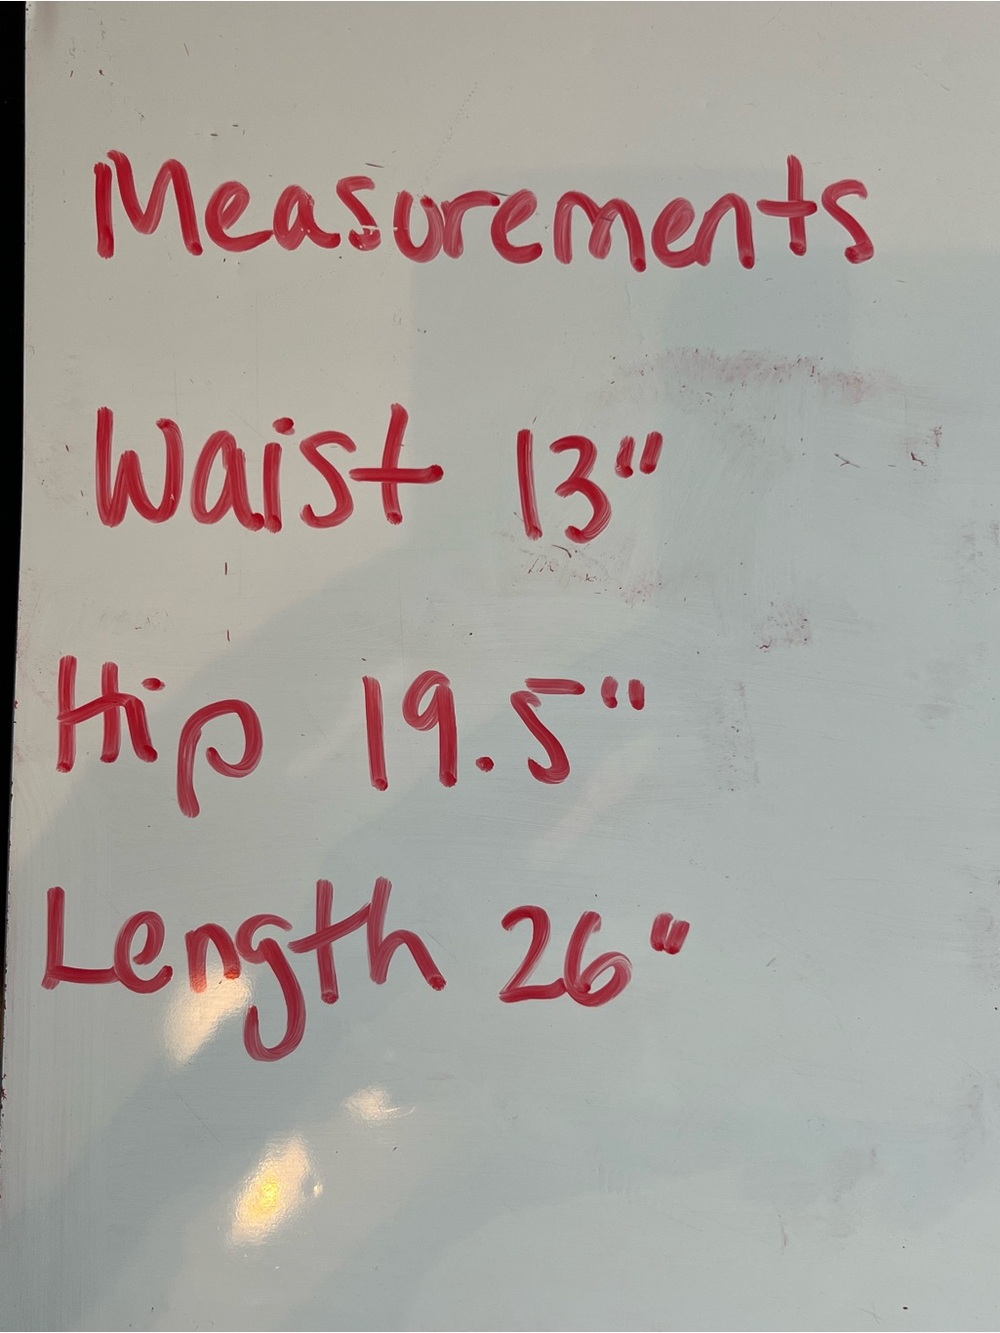 Measurements
Waist 13"
Hip 19.5"
Length 26"